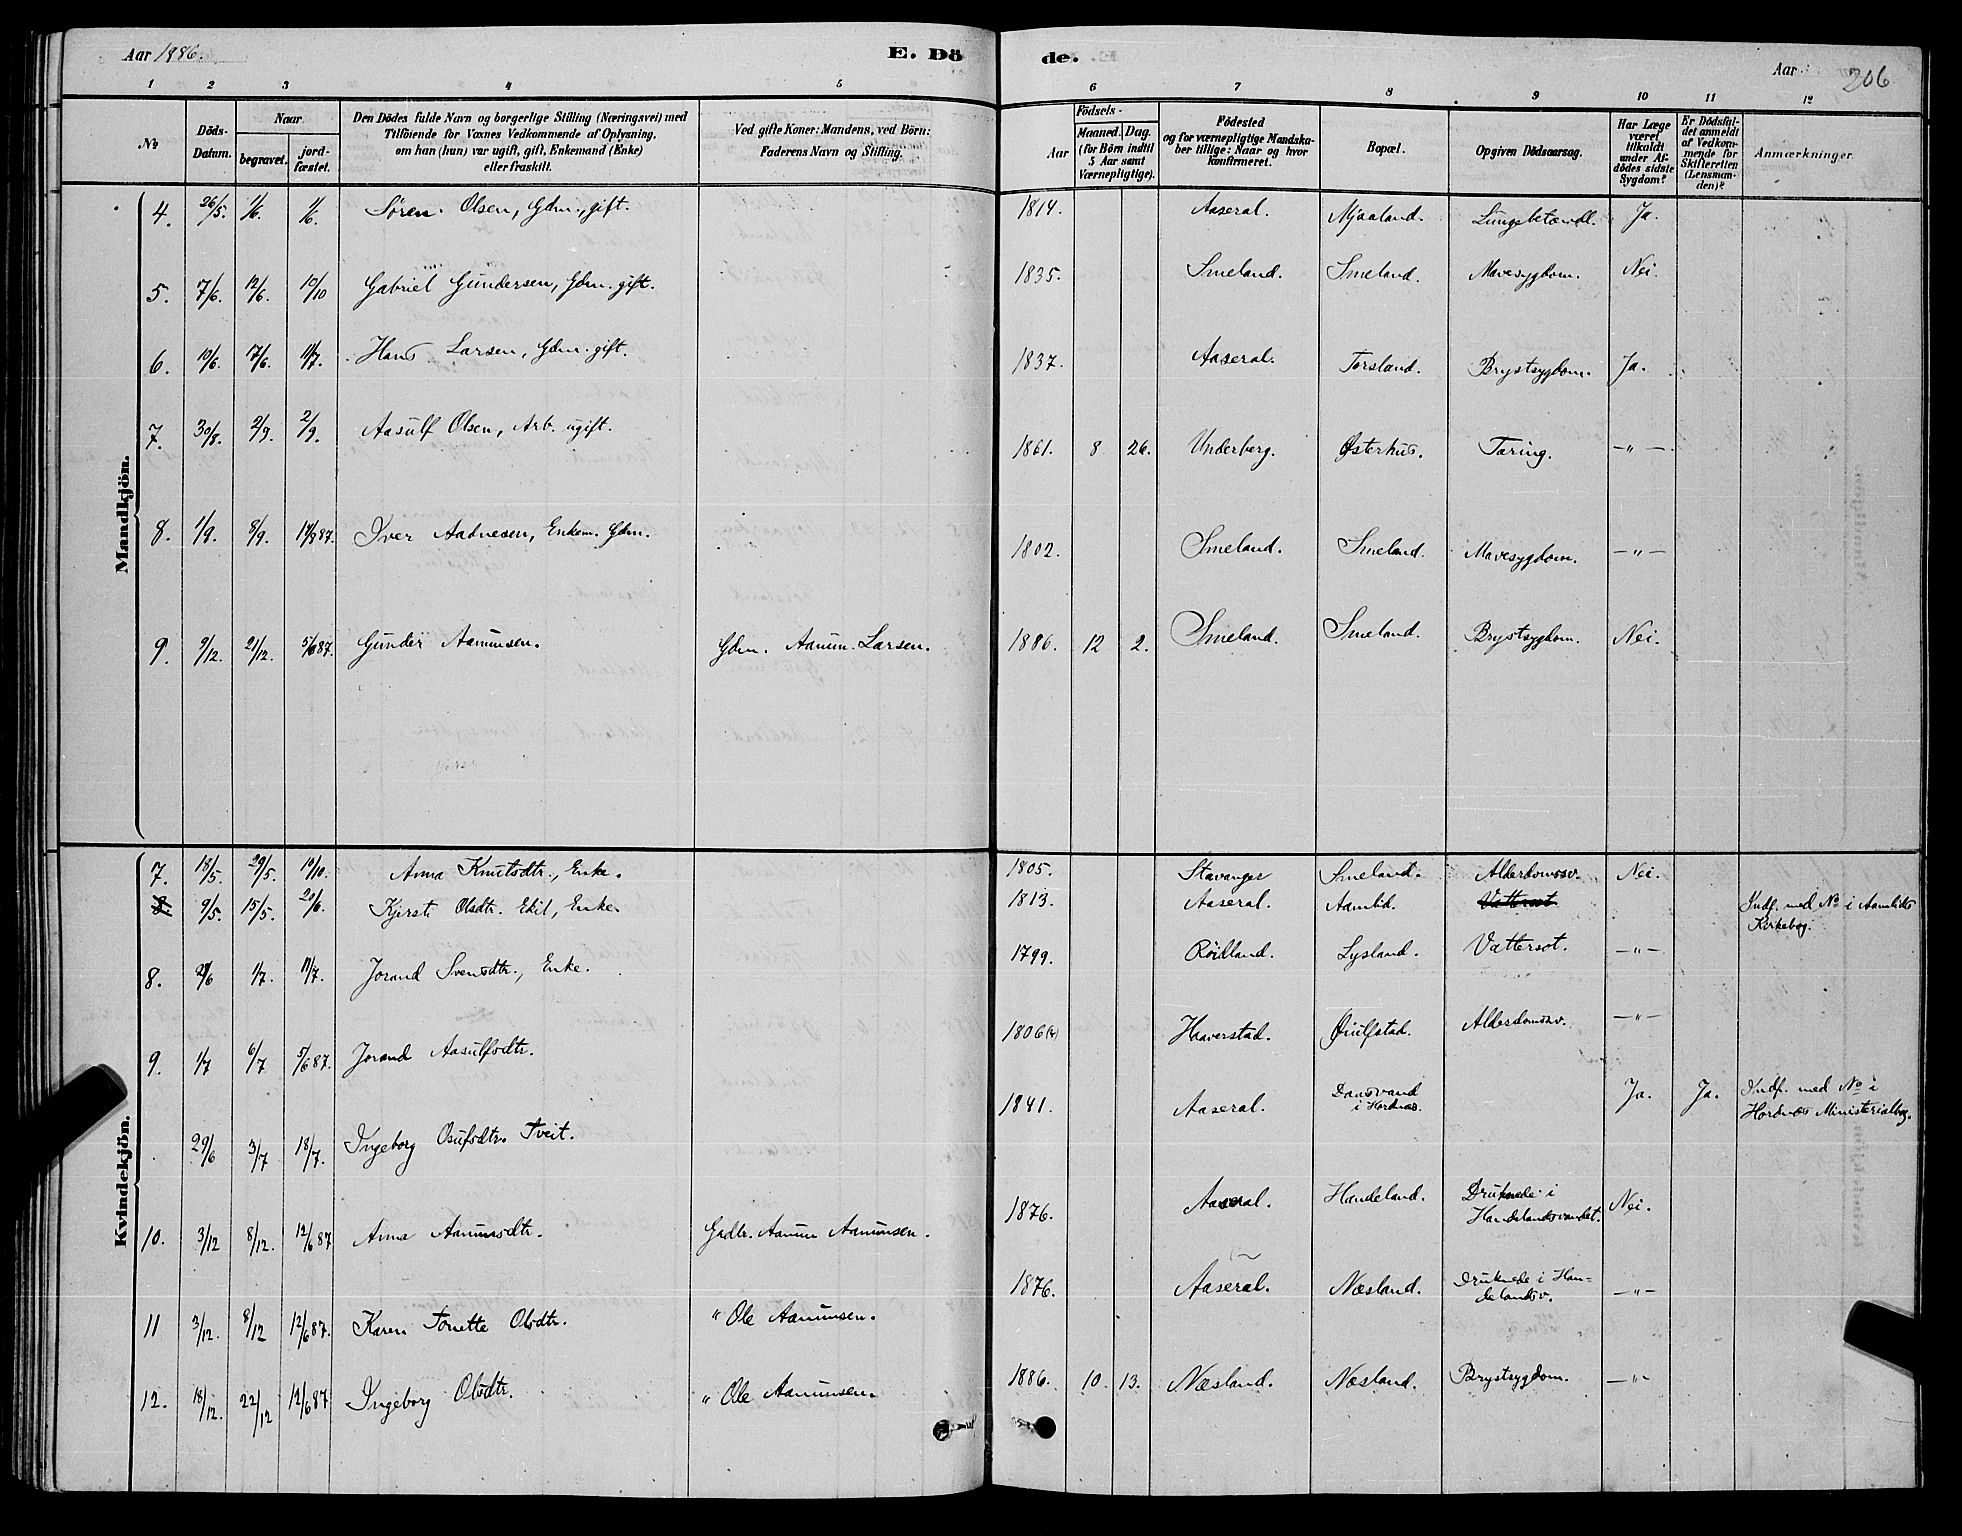 Aar 1886. E. Dö de. Aar 206
1 2 3 4 5 6 7 8 9 10 11 12
No
Döds-Datum.
Naar
begravet.
jord-fæstet.
Den Dödes fulde Navn og borgerlige Stilling (Næringsvei) med
Tilföiende for Voxnes Vedkommende af Oplysning,
om han (hun) var ugift, gift, Enkemand (Enke)
eller fraskilt.
Ved gifte Koner: Mandens, ved Börn:
Faderens Navn og Stilling.
Födsels-
Aar
Maaned. Dag.
(for Börn indtil
5 Aar samt
Værnepligtige).
Födested
og for værnepligtige Mandska-
ber tillige: Naar og hvor
konfirmeret.
Bopæl.
Opgiven Dödsaarsag.
Har Læge
været
tilkaldt
under Af-
dödes sidste
Sygdom?
Er Dödsfal-
det anmeldt
af Vedkom-
mende for
Skifteretten
(Lensman-
den)?
Anmærkninger.
Mandkjön.
4. 26/5. 1/6. 1/6. Sören Olsen, Gdm., gift. 1814. Aaseral. Mjaaland. Lungebetændl. Ja.
5. 7/6. 12/6. 10/10 Gabriel Gundersen, Gdm. gift. 1835. Smeland. Smeland. Mavesygdom. Nei.
6. 10/6. 17/6. 11/7. Hans Larsen, Gdm. gift. 1837. Aaseral. Torsland. Brystsygdom. Ja.
7. 30/8. 2/9. 2/9. Aasulf Olsen, Arb. ugift. 1861. 8 26. Underberg. Østerhus. Tæring. —"—
8. 1/9. 8/9. Iver Aadnesen, Enkem. Gdm. 1802. Smeland. Smeland. Mavesygdom. —"—
9. 9/12. 21/12. 5/6 87. Gunder Aanunsen. Gdm. Aanun Larsen. 1886. 12 2. Smeland. Smeland. Brystsygdom. Nei.
Kvindekjön.
7. 18/5. 29/5. 10/10. Anna Knutsdtr., Enke. 1805. Stavanger Smeland. Alderdomssv. Nei.
8. 9/5. 15/5. 20/6. Kjersti Olsdtr. Ekil, Enke 1813. Aaseral. Aamlid. Vattersot Indf. med No i Aamlids
Kirkebog.
8. 1/7. 11/7. Jorand Svensdtr., Enke. 1799. Röidland. Lysland. Vattersot. —"—
9. 1/7 6/7 5/6 87. Jorand Aasulfsdtr. 1806 Haaverstad. Øiulfstad. Alderdomssv. —"—
29/6 3/7 18/7. Ingeborg Osufsdtr. Tveit. 1841. Aaseral. Daasvand
i Hordnæs. Ja. Ja. Indf. med No i
Hordnæs Ministerialbog.
10. 3/12 8/12. 12/6 87 Anna Aanunsdtr. Gadbr. Aanun Aanunsen. 1876. Aaseral. Handeland. Druknede i
Handelandsvandet. Nei.
11 3/12. 8/12 12/6 87. Karen Tonette Olsdtr. " Ole Aanunsen. 1876. Aaseral. Næsland. Druknede i Han-
delandsv. —"—
12. 18/12. 22/12 12/6 87 Ingeborg Olsdtr. " Ole Aanunsen. 1886. 10. 13. Næsland. Næsland. Brystsygdom. —"—